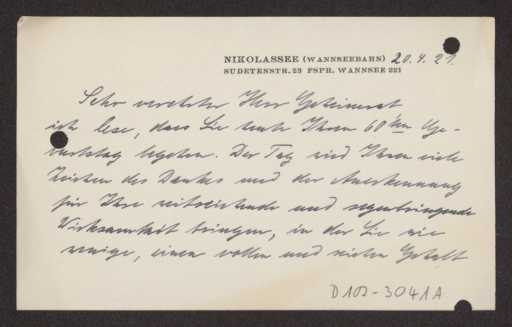 NIKOLASSEE (WANNSEEBAHN) 20.4.27.
SUDETENSTR. 23 FSPR. WANNSEE 221
Sehr verehrter Herr Geheimrat
ich lese, dass Sie heute Ihren 60ten Ge-
burtstag begehen. Der Tag wird Ihnen viele
Zeichen des Dankes und der Anerkennung
für Ihre weitreichende und segenbringende
Wirksamkeit bringen, in der Sie wie
wenige, einen vollen und reichen Gehalt
D 102-3041A